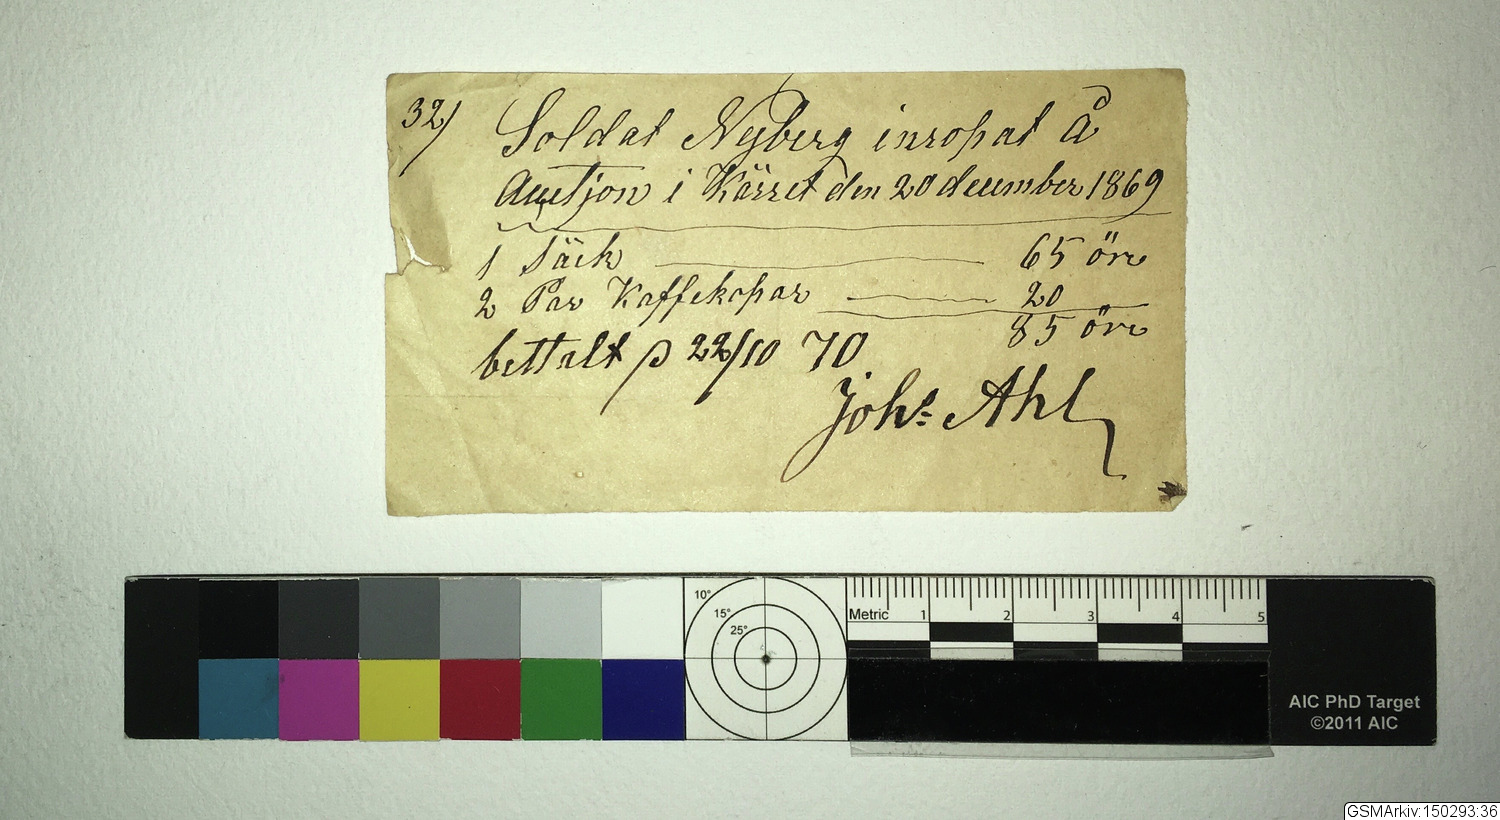 32)
Soldat Nyberg inropat å
Auctjon i Kärret den 20 december 1869
1 Säck 65 öre
2 Par Kaffekopar 20
85 öre
bettalt p 22/10 70
Johs Ahl
10°
15°
25°
Metric 1 2 3 4 5
AIC PhD Target
©2011 AIC
GSMArkiv:150293:36